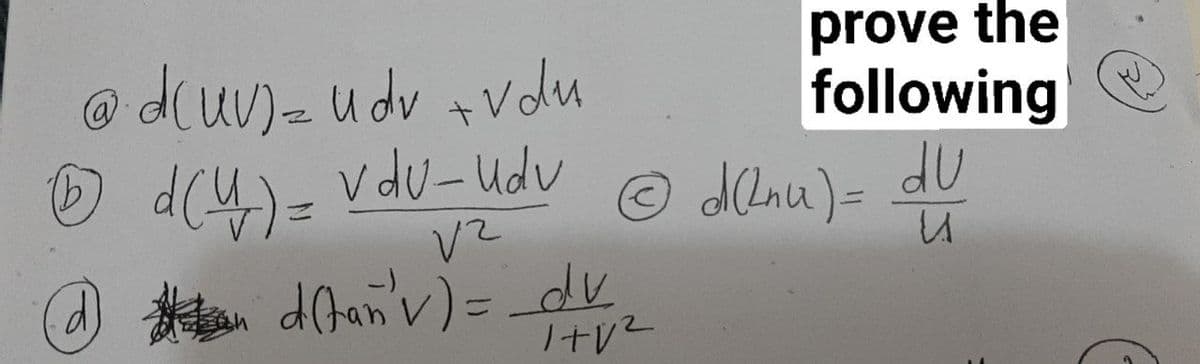 prove the
following
ⓐ d(uv) = u dv + v du
ⓑ d(u/v) = (v du - u dv)/v²
ⓒ d(lnu) = du/u
ⓓ d(tan⁻¹v) = dv/(1+v²)